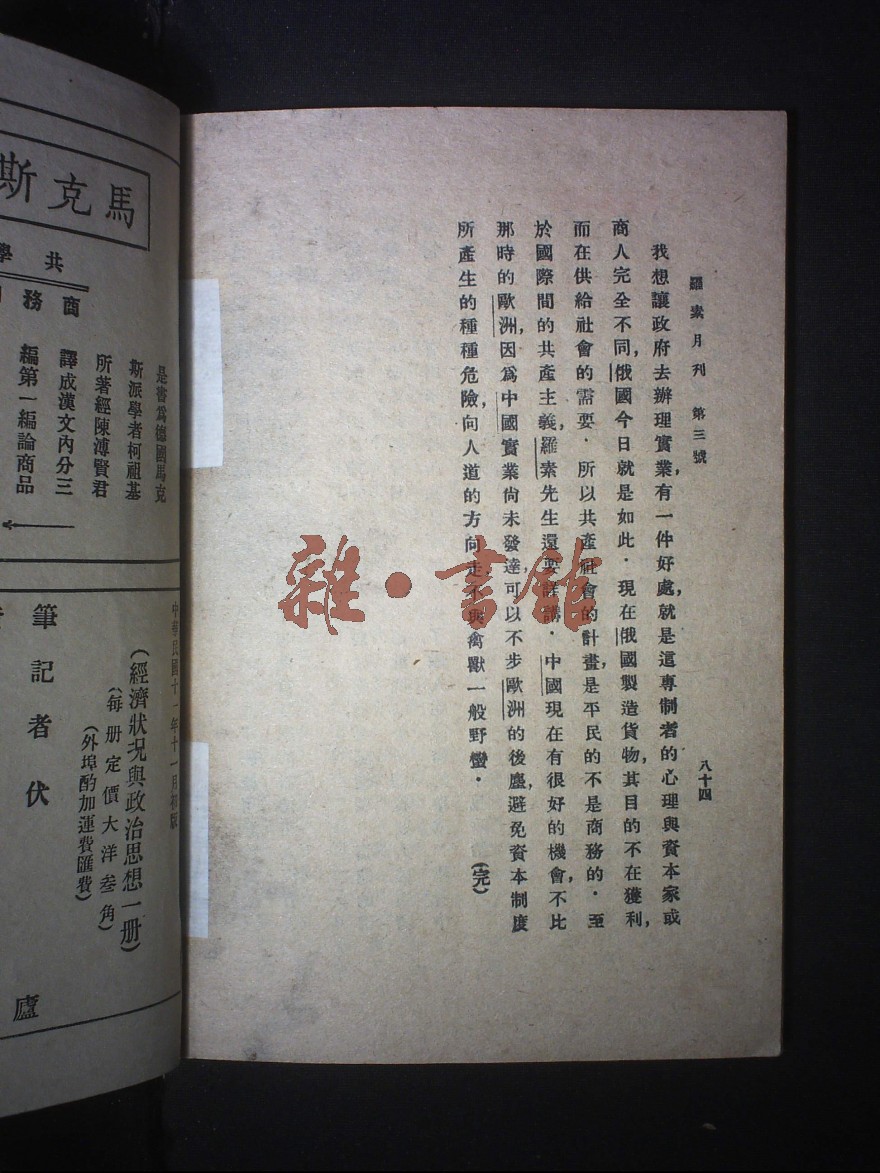 羅素月刊 第三號
八十四
我想讓政府去辦理實業,有一件好處,就是這專制者的心理與資本家或
商人完全不同,俄國今日就是如此.現在俄國製造貨物,其目的不在獲利,
而在供給社會的需要.所以共產社會的計畫,是平民的不是商務的.至
於國際間的共產主義,羅素先生還要詳講.中國現在有很好的機會,不比
那時的歐洲,因為中國實業尚未發達,可以不步歐洲的後塵,避免資本制度
所產生的種種危險,向人道的方向走,不與禽獸一般野蠻.
(完)
雜·書館
馬克斯
共學
商務
是書為德國馬克
斯派學者柯祖基
所著經陳溥賢君
譯成漢文內分三
編第一編論商品
中華民國十一年十一月初版
(經濟狀況與政治思想一冊)
(每冊定價大洋叁角)
(外埠酌加運費匯費)
筆記者伏廬